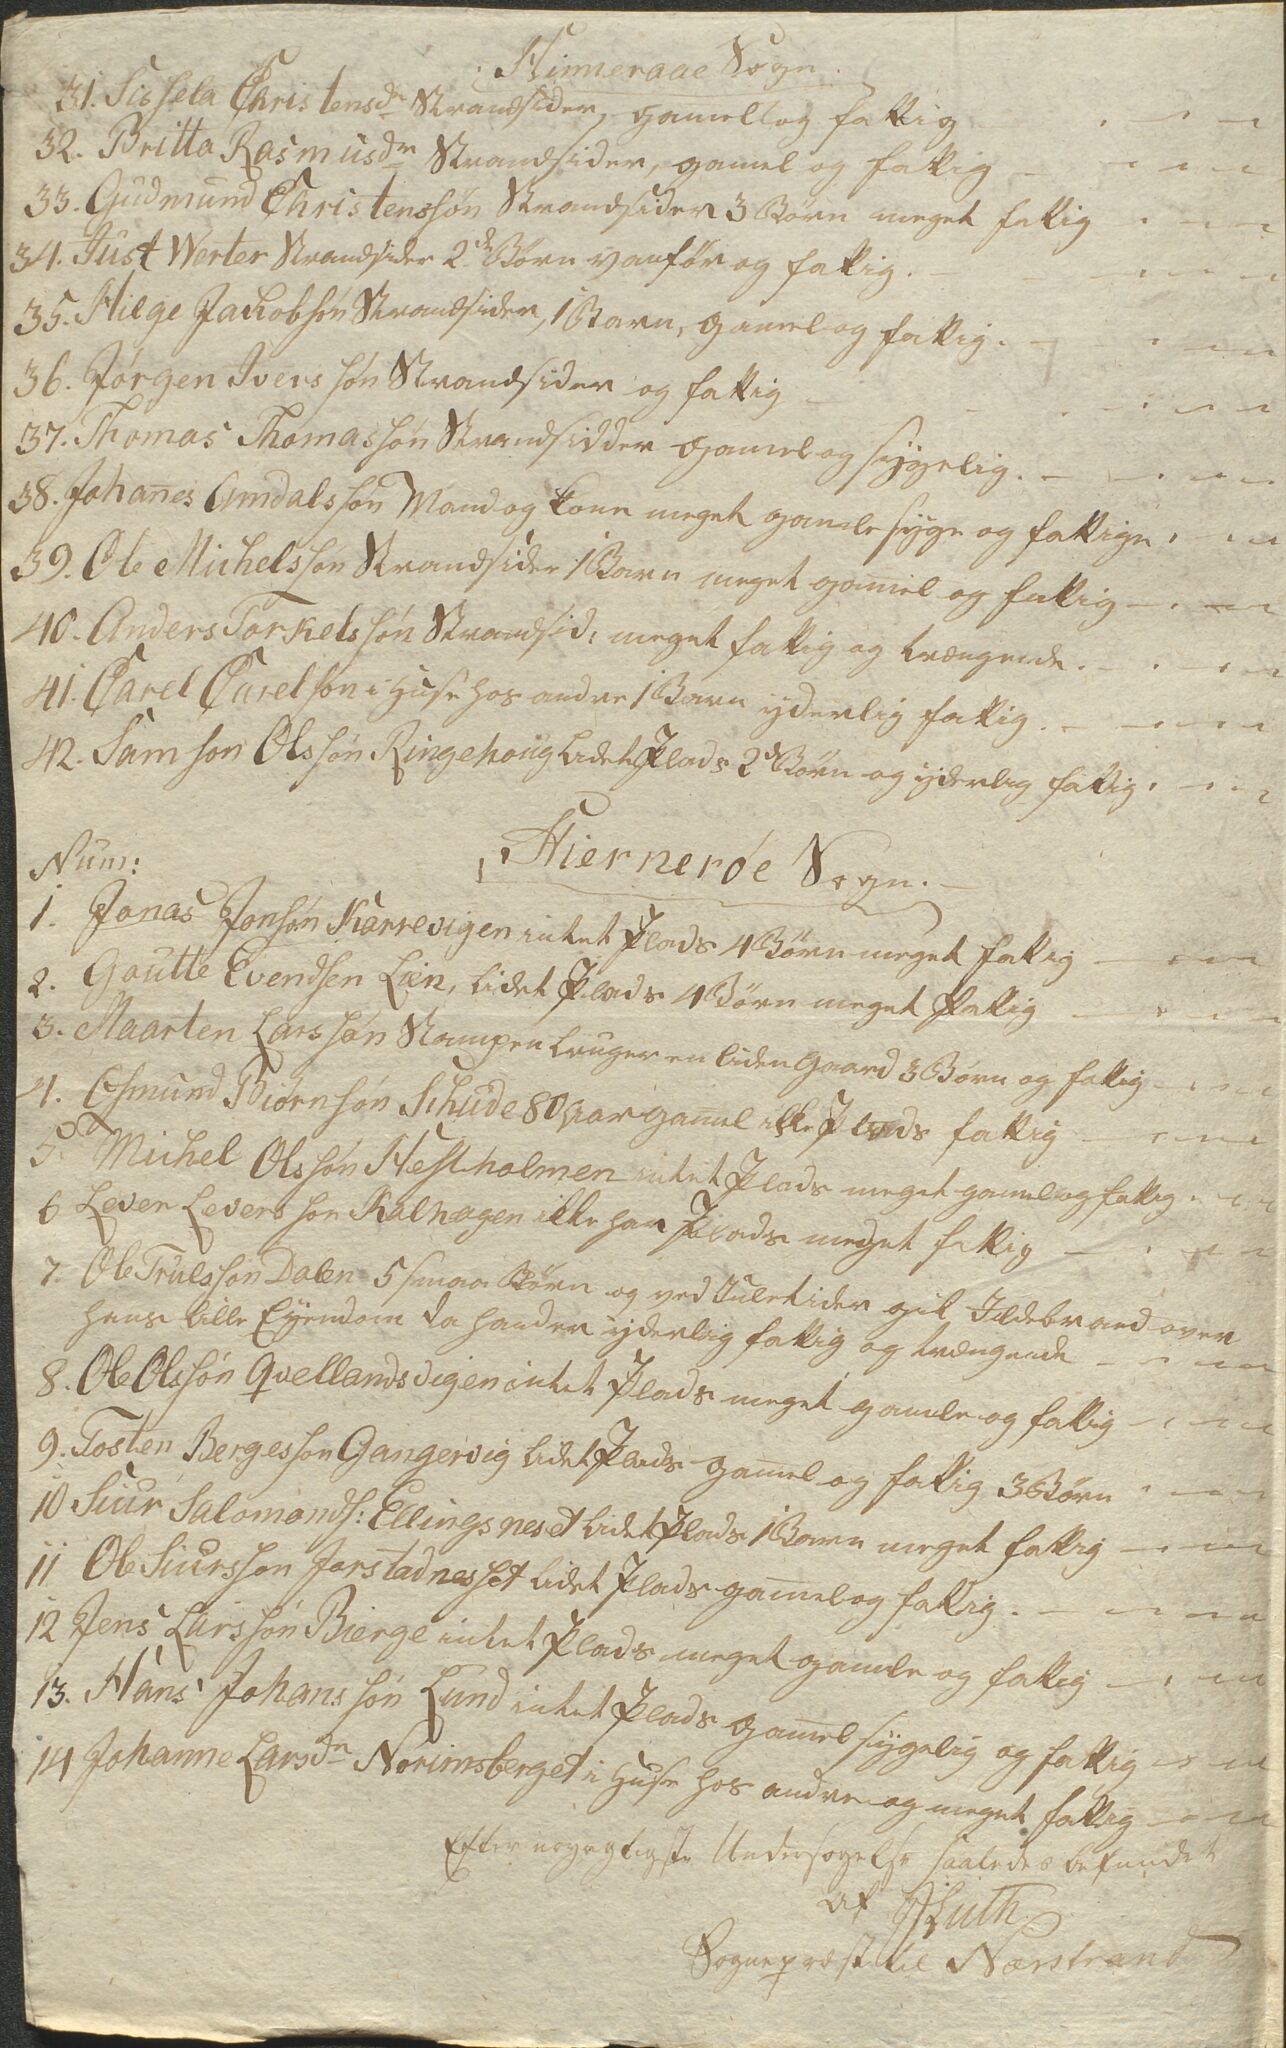 Hinneraae Sogn.
31. Sissela Christensdr Strandsider, gamel og fattig
32. Britta Rasmusdr Strandsider, gamel og fattig
33. Gudmund Christenssøn Strandsider 3 Børn meget fattig
34. Just Werter Strandsider 2de Børn vanfør og fattig.
35. Hilge Jackobsøn Strandsider, 1 Barn, gamel og fattig.
36. Jørgen Iverssøn Strandsider og fattig
37. Thomas Thomassøn Strandsidder gamel og sygelig.
38. Johan̄es Amdalssøn Mand og Kone meget gamle syge og fattige.
39. Ole Michelssøn Strandsider 1 Barn meget gam̄el og fattig
40. Anders Torkelssøn Strandsid: meget fattig og trængende.
41. Carel Carelsøn i Huse hos andre 1 Barn yderlig fattig.
42. Samson Olssøn Ringehoug lidet Plads 2de Børn og yderlig fattig.
Hiernerøe Sogn.
Num:
1. Jonas Jonsøn Karrevigen intet Plads 4 Børn meget fattig
2. Goutte Evendsen Lien, lidet Plads 4 Børn meget fattig
3. Maarten Larssøn Stampen bruger en liden Gaard 3 Børn og fattig
4. Osmund Biørnsøn Schude 80 Aar gam̄el ikke Plads fattig
5. Michel Olssøn Hestholmen intet Plads meget gamel og fattig.
6 Lever Leverssøn Kalhagen ikke har Plads meget fattig
7. Ole Trulssøn Dalen 5 smaa Børn og ved Juletider gik Ildebrand over
hans lille Eyendom da han er yderlig fattig og trængende
8. Ole Olssøn Qvellandsvigen intet Plads meget gamle og fattig
9. Tosten Bergessøn Gangervig lidet Plads gam̄el og fattig 3 Børn
10 Siur Salomonds: Ellingsneset lidet Plads 1 Barn meget fattig
11 Ole Siurssøn Jorstadnesset lidet Plads gam̄el og fattig.
12 Jens Larssøn Bierge intet Plads meget gamle og fattig
13. Hans Johanssøn Lund intet Plads gam̄el sygelig og fattig
14 Johanne Larsdr Norimsberget i Huse hos andre og meget fattig
Efter nøyagtigste Undersøgelse saaledes befundet
af Luth
Sognepræst til Nærstrand